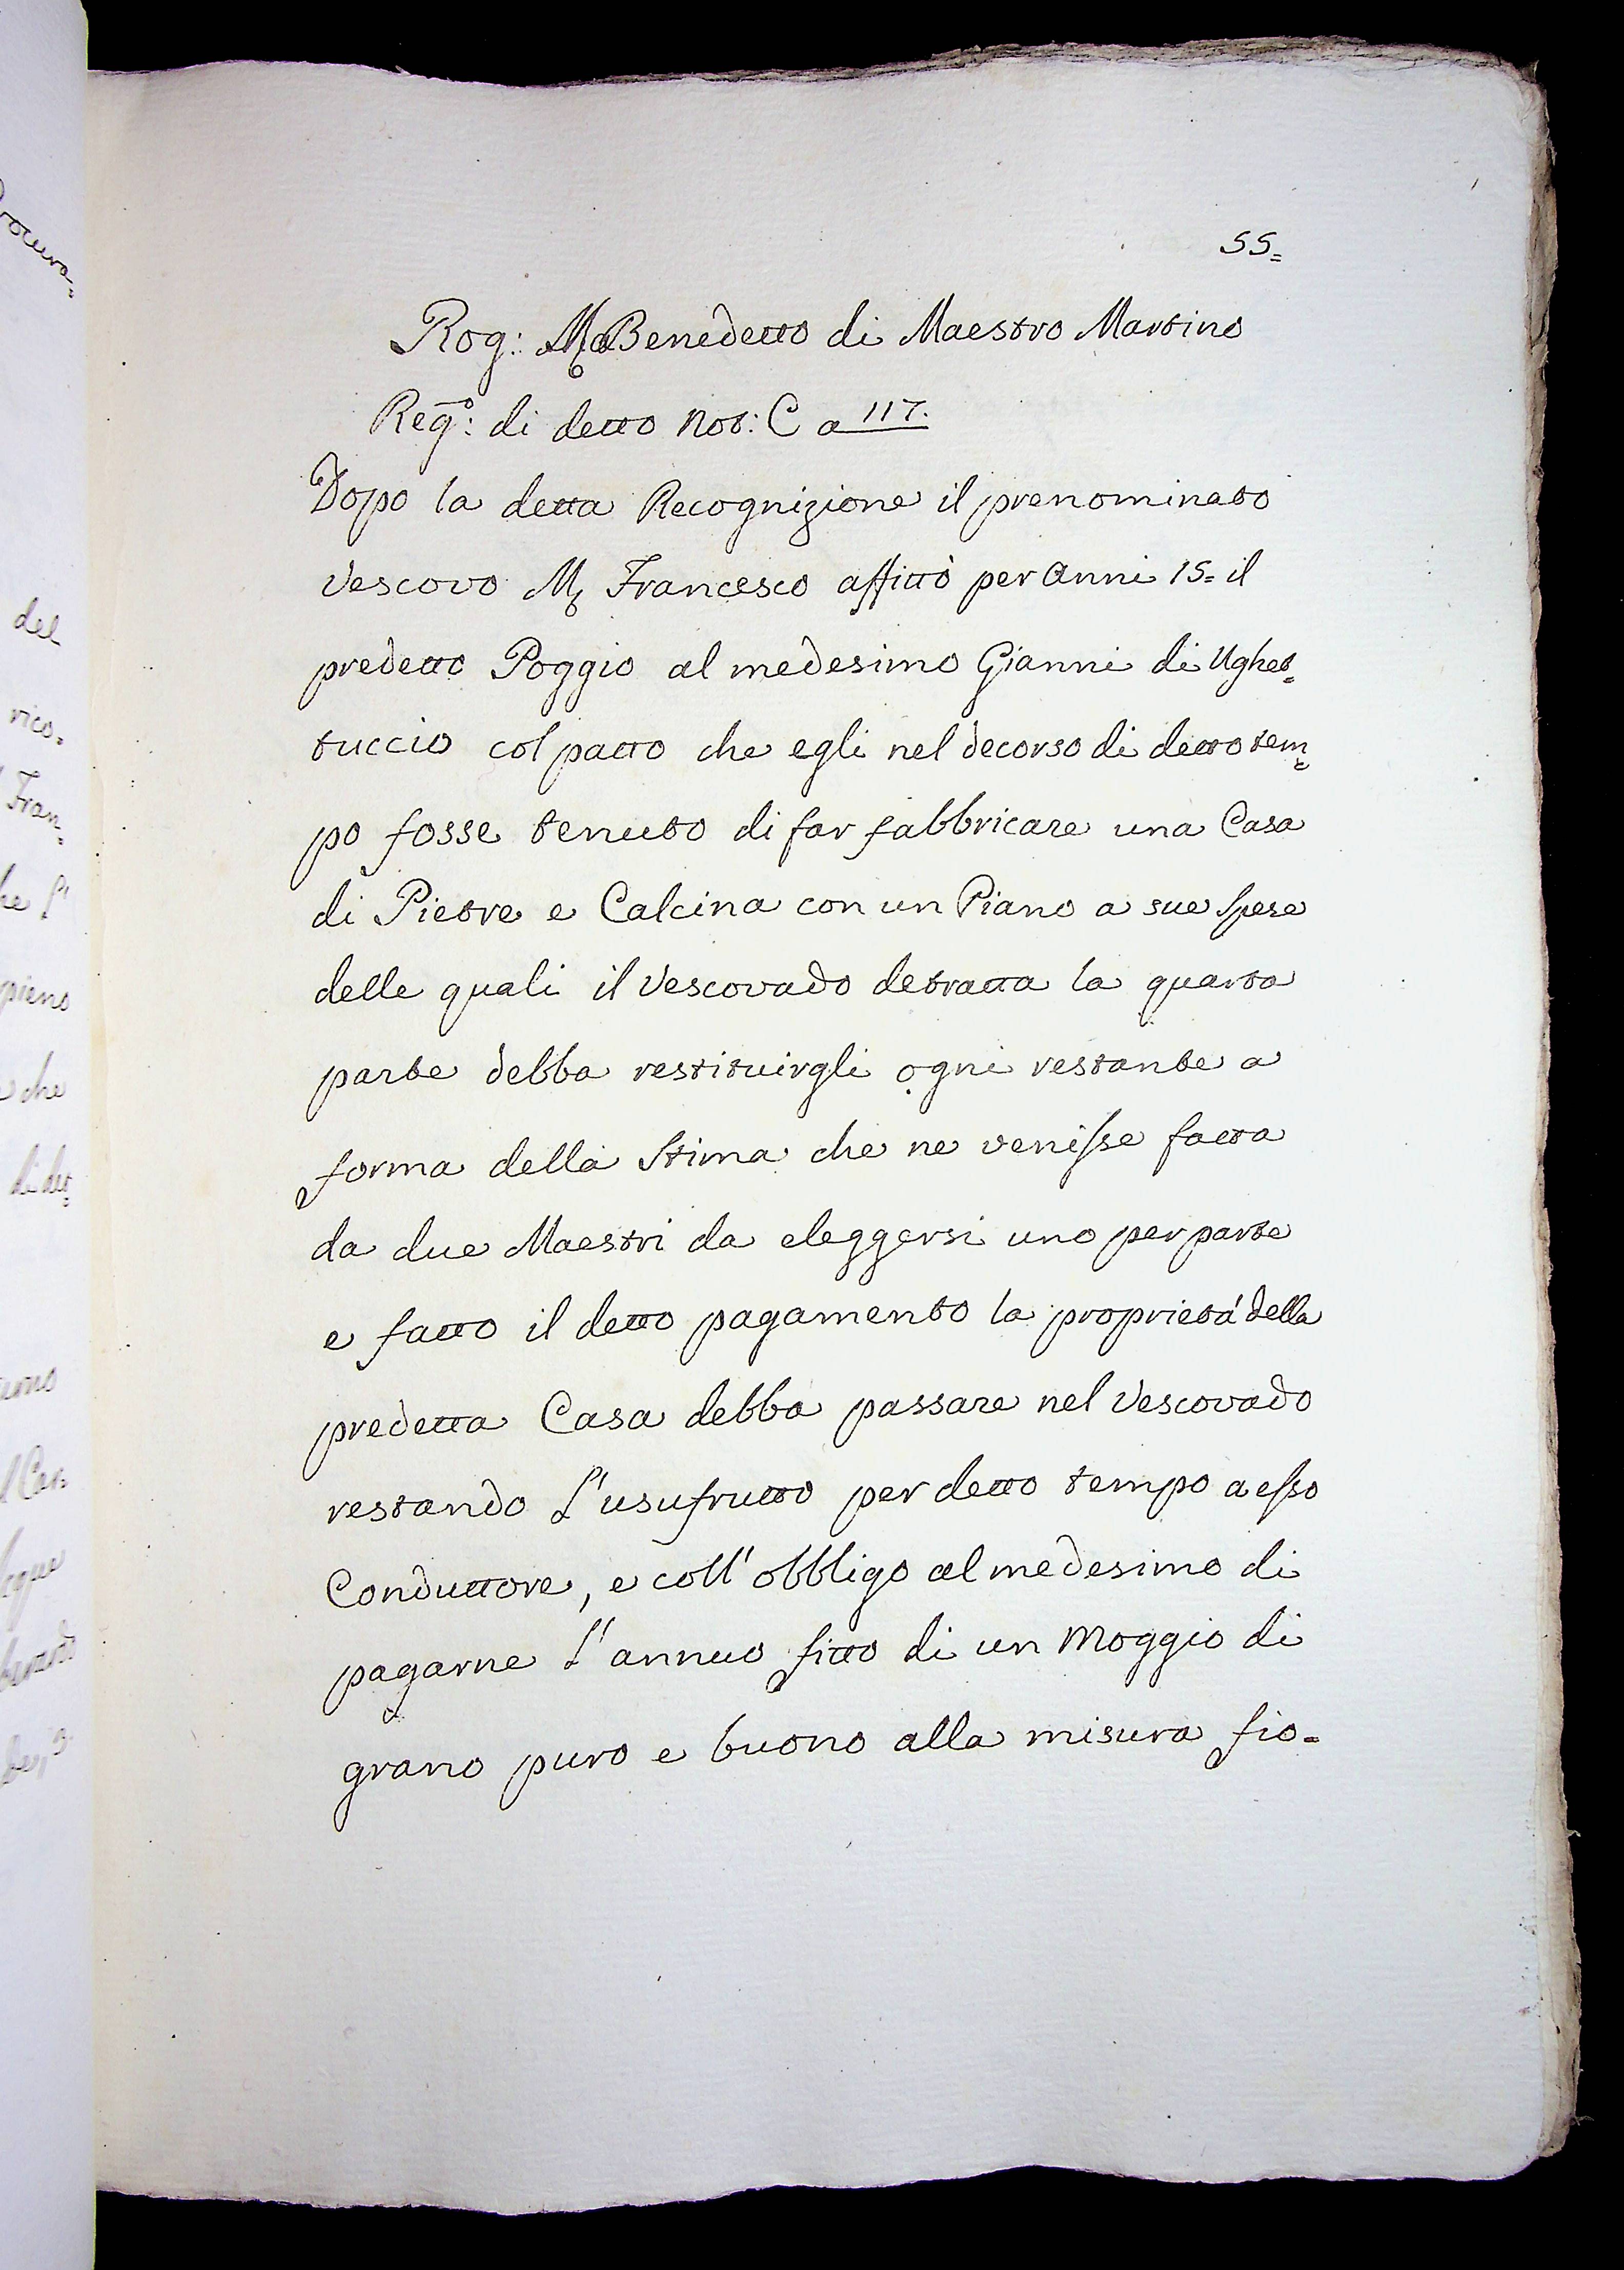 55=
Rog: Ma Benedetto di Maestro Martino
Reg.º: di detto Not: C a 117.
Dopo la detta Recognizione il prenominato
Vescovo M. Francesco affittò per Anni 15= il
predetto Poggio al medesimo Gianni di Ughet=
tuccio col patto che egli nel decorso di detto tem=
po fosse tenuto di far fabbricare una Casa
di Pietre e Calcina con un Piano a sue spese
delle quali il Vescovado detratta la quarta
parte debba restituirgli ogni restante a
forma della Stima che ne venisse fatta
da due Maestri da eleggersi uno per parte
e fatto il detto pagamento la proprietá della
predetta Casa debba passare nel Vescovado
restando l'usufrutto per detto tempo a esso
Conduttore, e coll'obbligo al medesimo di
pagarne l'annuo fitto di un Moggio di
grano puro e buono alla misura fio=
del
rico=
Fran=
he l'
pieno
che
di det=